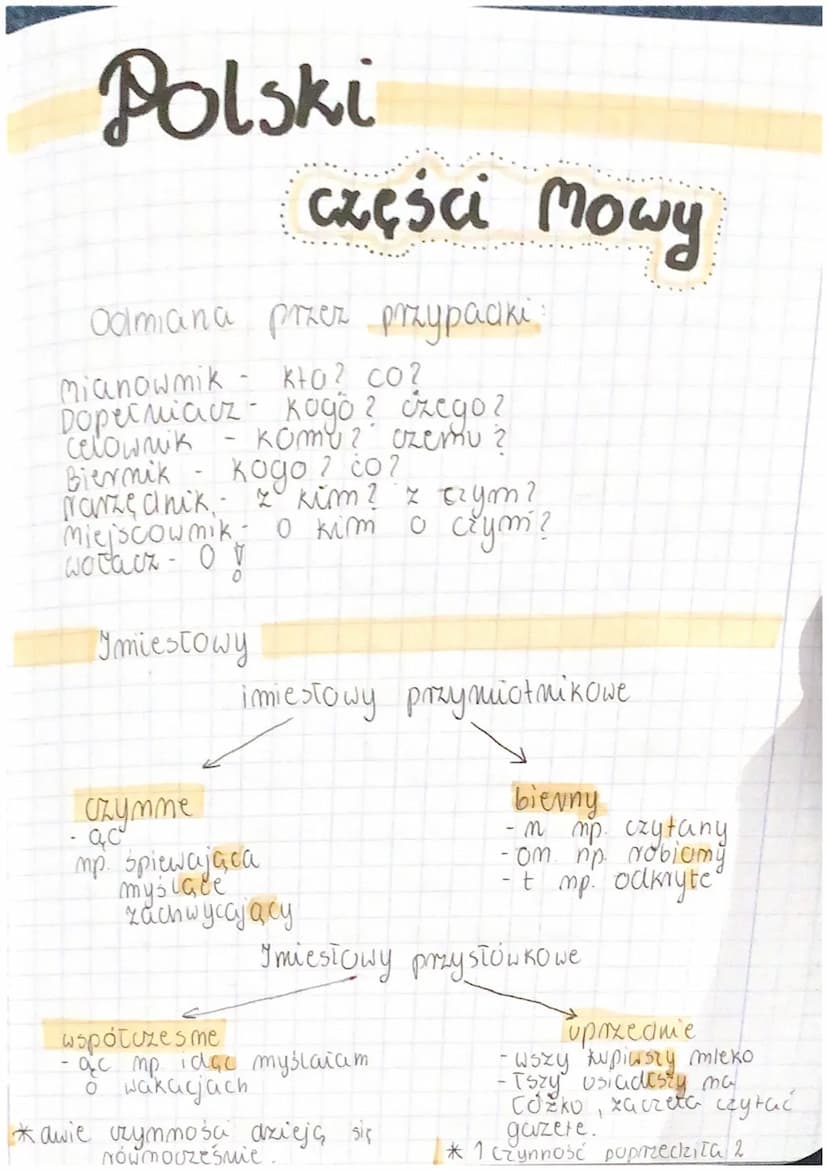 Polski
części Mowy
Odmiana przez przypadki:
Mianownik - kto? co?
Dopełniacz - kogo? czego?
celownik - komu? czemu?
Biernik - kogo? co?
Narzędnik - z kim? z czym?
Miejscownik - o kim o czym?
wołacz - O!
Imiesłowy
imiesłowy przymiotnikowe
czynne
bierny
- ąc
np. śpiewająca
myślące
zachwycający
- n np. czytany
- on np. robiony
- t np. odkryte
Imiesłowy przysłówkowe
współczesne
uprzednie
- ąc np idąc myślałam
o wakacjach
- wszy kupiwszy mleko
- łszy usiadłszy na
łóżko, zaczęła czytać
gazetę.
* dwie czynności dzieją się
równocześnie.
* 1 czynność poprzedziła 2